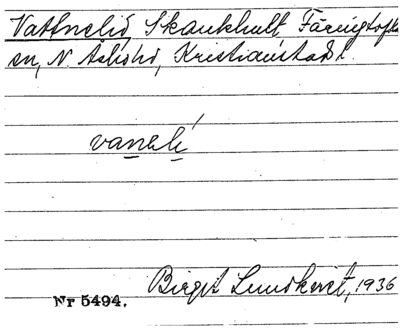 Vattnelid, Skankhult Färingtofta
sn, N Åsbohd, Kristianstads l.
vaneli´
Birgit Lundkvist, 1936
Nr 5494.